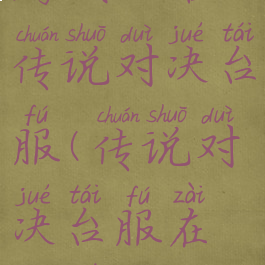 chuán shuō duì jué tái
传说对决台
fú chuán shuō duì
服(传说对
jué tái fú zài
决台服在